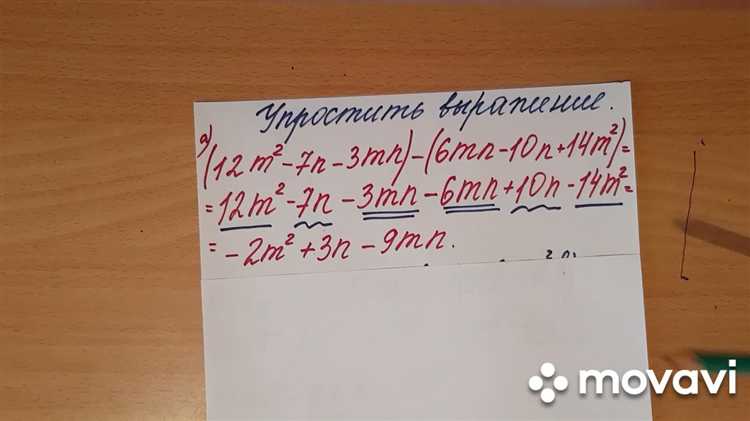 Упростить выражение.
а) (12m² - 7n - 3mn) - (6mn - 10n + 14m²) =
= 12m² - 7n - 3mn - 6mn + 10n - 14m² =
= -2m² + 3n - 9mn.
movavi